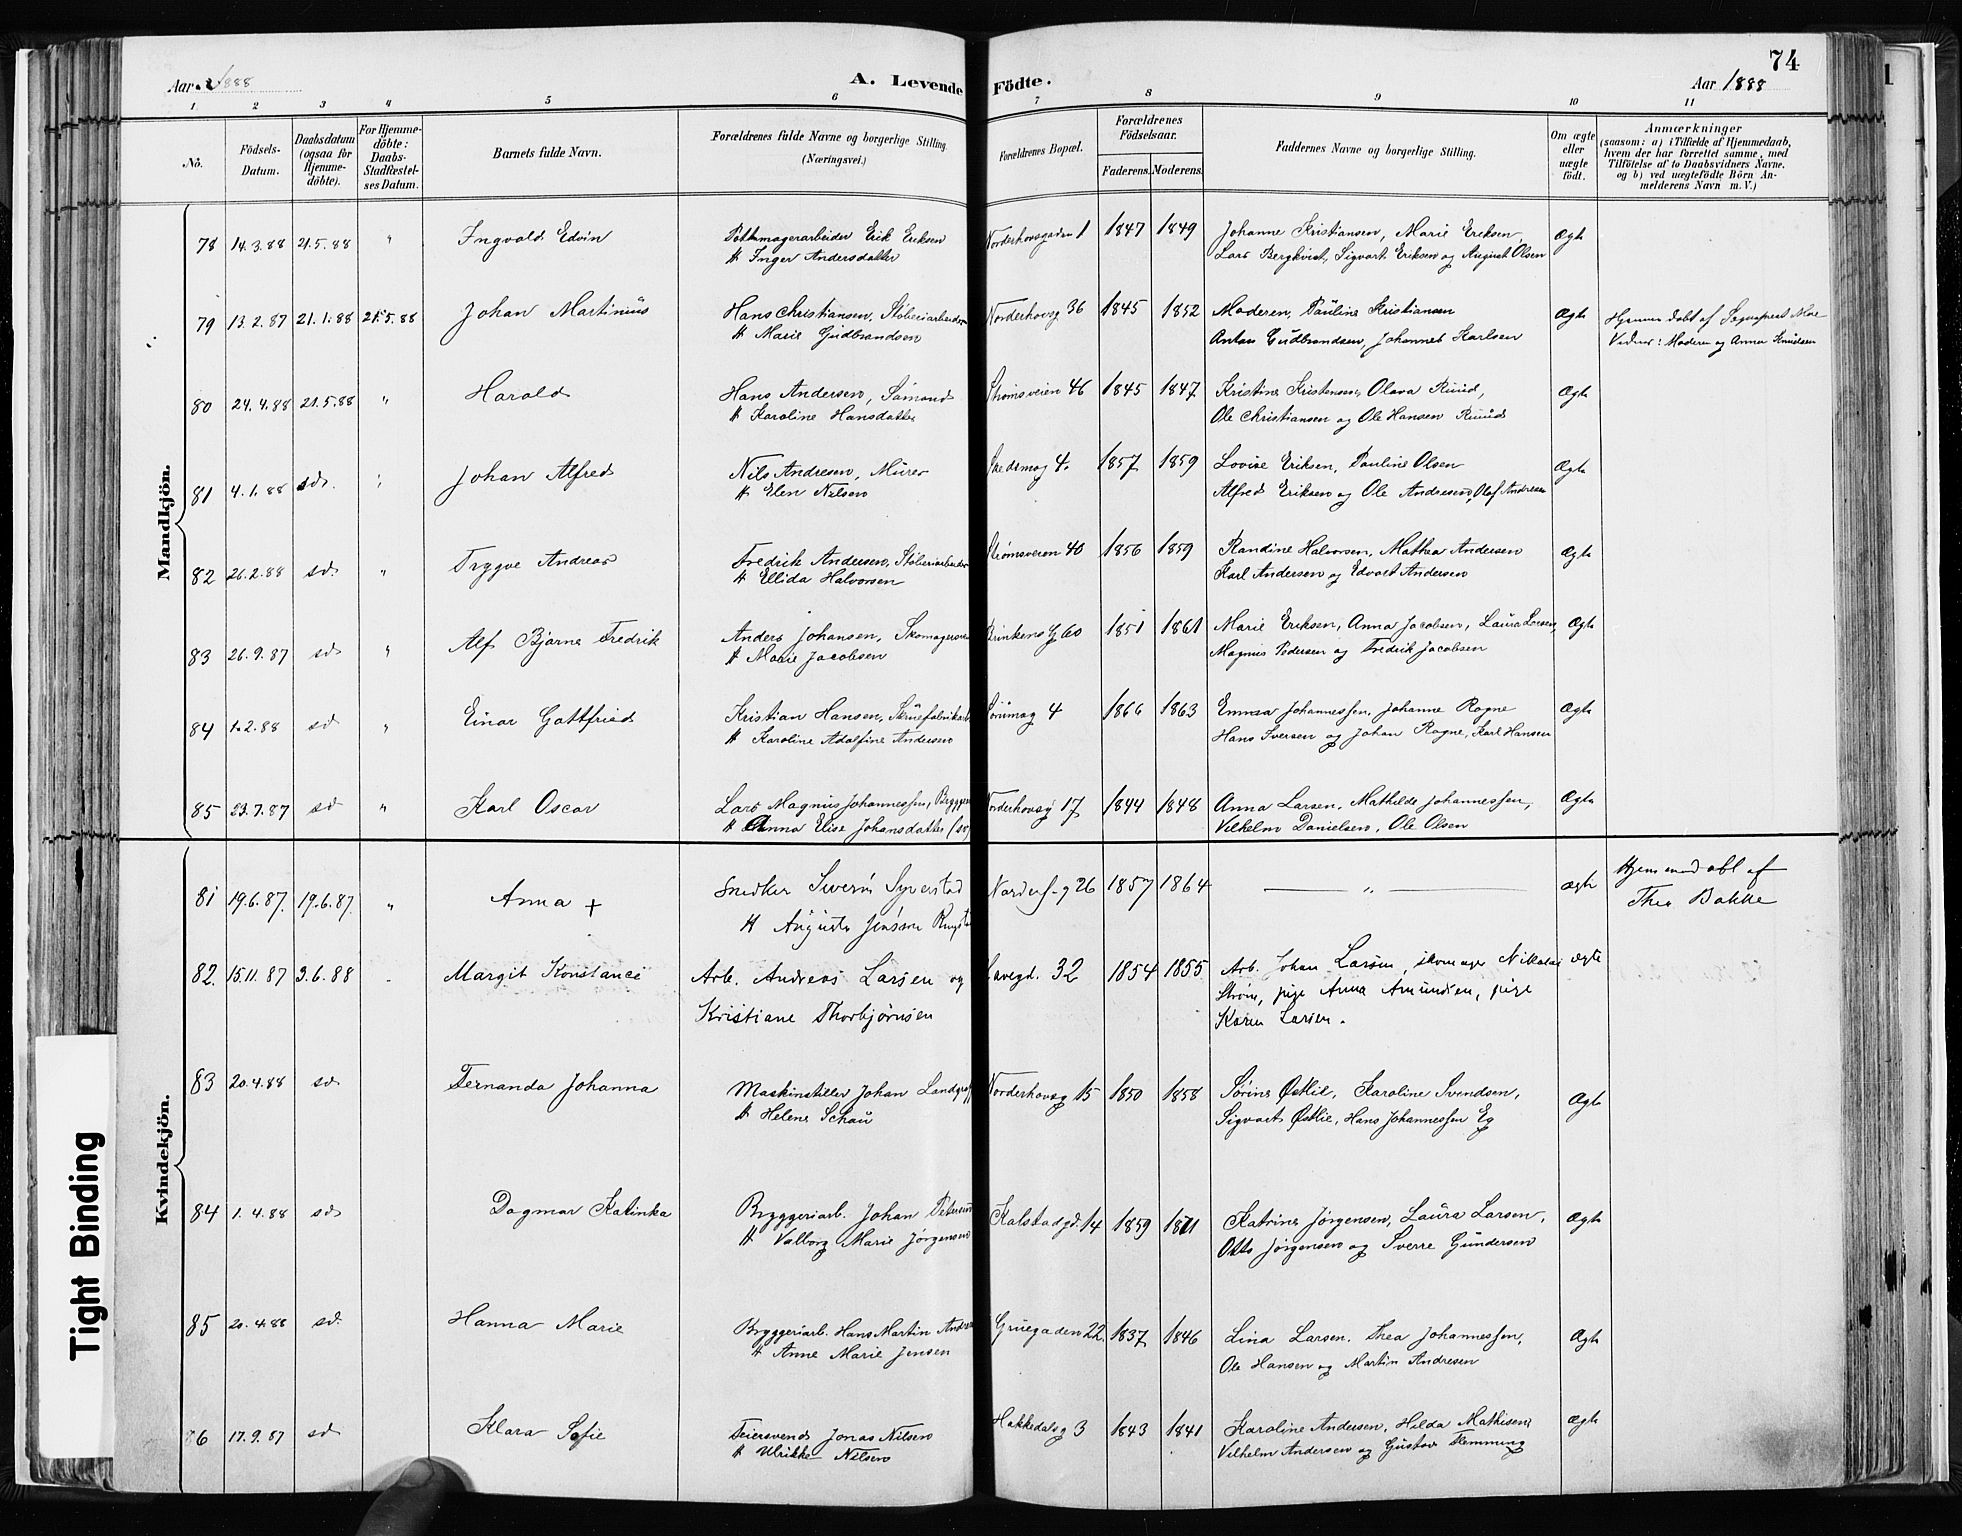 74
Aar 1888
A. Levende Födte.
Aar 1888
1 2 3 4 5 6 7 8 9 10 11
No.
Födsels-Datum.
Daabsdatum (ogsaa for Hjemme-döbte).
For Hjemme-döbte: Daabs-Stadfæstel-ses Datum.
Barnets fulde Navn.
Forældrenes fulde Navne og borgerlige Stilling.
(Næringsvei.)
Forældrenes Bopæl.
Forældrenes Födselsaar.
Faderens. Moderens.
Faddernes Navne og borgerlige Stilling.
Om ægte eller uægte födt.
Anmærkninger
(saasom: a) i Tilfælde af Hjemmedaab,
hvem der har forrettet samme, med
Tilföielse af to Daabsvidners Navne.
og b) ved uægtefödte Börn An-
melderens Navn m. V.)
Mandkjön.
78 14.3.88 21.5.88 " Ingvald Edvin Erik Eriksen Norderhovsgaden 1 1847 1849 Johanne Kristiansen, Marie Eriksen, Ægte
H Inger Andersdatter Lars Bergkvist, Sigvart Eriksen og August Olsen
79 13.2.87 21.1.88 21.5.88 Johan Martinius Hans Christiansen, Støberiarbeider Norderhovsg 36 1845 1852 Moderen, Pauline Kristiansen Ægte
H Marie Gudbrandsen Anton Gudbrandsen, Johannes Karlsen Vidner: Moderen og Anna Knudsen
80 24.4.88 21.5.88 " Harald Hans Andersen, Strømsveien 46 1845 1847 Kristine Kristensen, Olava Ruud, Ægte
H Karoline Hansdatter Ole Christiansen og Ole Hansen Ruud
81 4.1.88 sd. " Johan Alfred Nils Andresen, Murer 4. 1857 1859 Lovise Eriksen, Pauline Olsen Ægte
H Elen Nilsen Alfred Eriksen og Ole Andresen, Olaf Andresen
82 26.2.88 sd. " Trygve Andreas Fredrik Andersen, Støberiarbeider Strømsveien 40 1856 1859 Randine Halvorsen, Mathea Andersen Ægte
H Ellida Halvorsen Karl Andersen og Edvart Andersen
83 26.9.87 sd " Alf Bjarne Fredrik Anders Johansen, Brinkens G 60 1851 1861 Marie Eriksen, Anna Jacobsen, Laura Larsen, Ægte
H Marie Jacobsen Magnus Pedersen og Fredrik Jacobsen
84 1.2.88 sd " Einar Gottfried Kristian Hansen, 4 1866 1863 Emma Johannessen, Johanne Rogne Ægte
H Karoline Adolfine Andersen Hans Iversen og Johan Rogne, Karl Hansen
85 23.7.87 sd " Karl Oscar Lars Magnus Johannessen, Norderhovsg 17 1844 1848 Anna Larsen, Mathilde Johannessen, Ægte
H Anna Elise Johansdatter Vilhelm Danielsen, Ole Olsen
Kvindekjön.
81 19.6.87. 19.6.87. " Anna + Snedker 26 1857 1864 — " — Ægte Hjemmedøbt af
H Augusta Thea Bakke
82. 15.11.87 3.6.88 Margit Konstance Arb. Andreas Larsen og 32 1854 1855 Arb. Johan Larsen, skomager Nikolai ægte
Kristiane Thorbjørnsen Strøm, pige Anna Amundsen, pige
Karen Larsen.
83 20.4.88 sd Fernanda Johanna Maskinstiller Johan Norderhovsg 15 1850 1858 Sørine Østlie, Karoline Svendsen, Ægte
H Helene Schau Sigvart Østlie, Hans Johannessen Eg
84 1.4.88 sd Dagmar Katinka Bryggeriarb. Johan Petersen Kalstadgd. 14 1859 Katrine Jørgensen, Laura Larsen, Ægte
H Valborg Marie Jørgensen Otto Jørgensen og Sverre Gundersen
85 20.4.88 sd. Hanna Marie Bryggeriarb. Hans Martin Gruegaden 22. 1837 1846 Lina Larsen, Thea Johannessen, Ægte
H Anne Marie Jensen Ole Hansen og Martin Andresen
86 17.9.87 sd Klara Sofie Feiersvend Jonas Nilsen Hakkedalsg 3 1843 1841 Karoline Andersen, Hilda Mathisen Ægte
H Ulrikke Nilsen Vilhelm Andersen og Gustav Flemming
Tight Binding